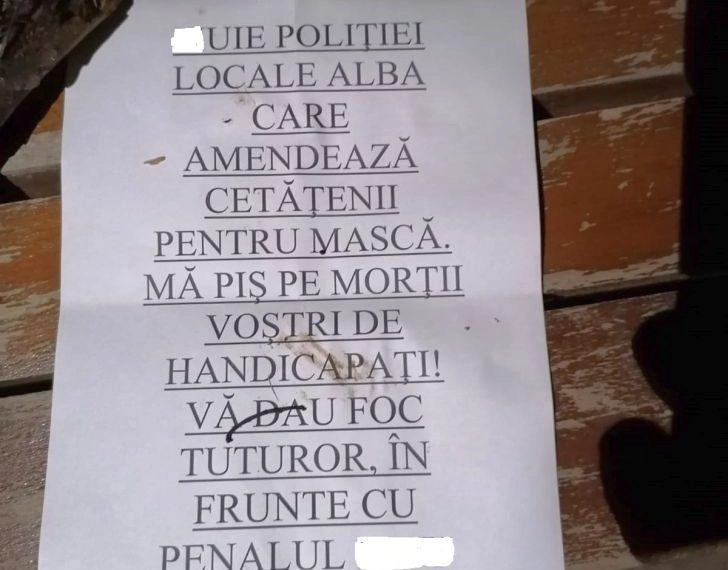 UIE POLIȚIEI
LOCALE ALBA
CARE
AMENDEAZĂ
CETĂȚENII
PENTRU MASCĂ.
MĂ PIȘ PE MORȚII
VOȘTRI DE
HANDICAPAȚI!
VĂ DAU FOC
TUTUROR, ÎN
FRUNTE CU
PENALUL